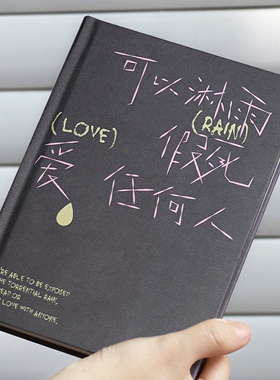 可以淋雨
(RAIN)
(LOVE)
假死
爱 任何人
RE ABLE TO BE EXPOSED
HE TORRENTIAL RAIN,
EAD OR
LOVE WITH ANYONE.